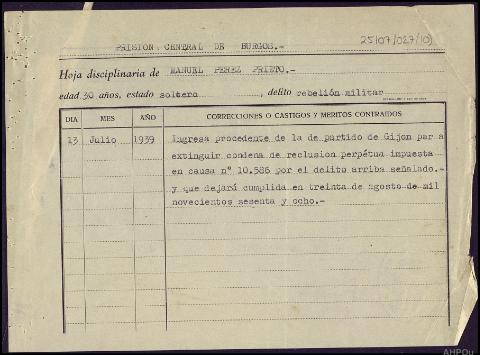 25/07/027/10
PRISION CENTRAL DE BURGOS.-
Hoja disciplinaria de MANUEL PEREZ PRIETO.-
edad 30 años, estado soltero , delito rebelión militar
DIA MES AÑO CORRECCIONES O CASTIGOS Y MERITOS CONTRAIDOS
13 Julio 1939 Ingresa procedente de la de partido de Gijon par a
extinguir condena de reclusion perpétua impuesta
en causa nº 10.586 por el delito arriba señalado.-
y que dejará cumplida en treinta de agosto de mil
novecientos sesenta y ocho.-
AHPOu